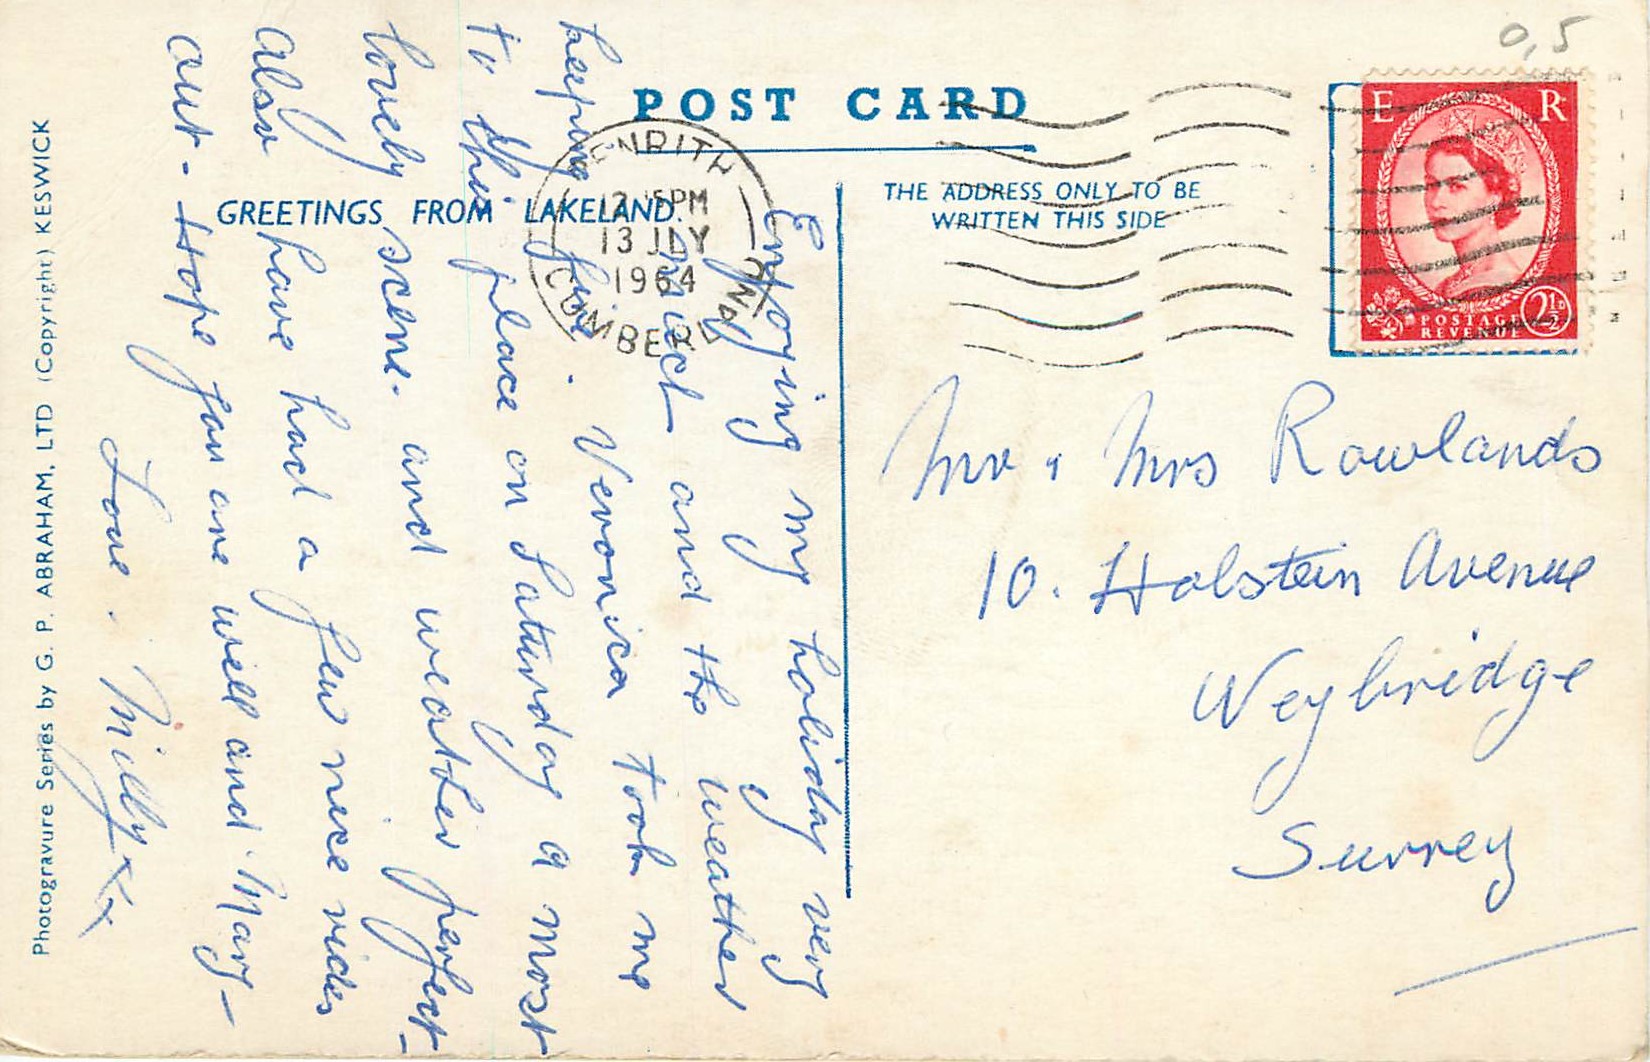 0,5
POST CARD
GREETINGS FROM LAKELAND.
THE ADDRESS ONLY TO BE
WRITTEN THIS SIDE
PENRITH
12.15PM
13 JLY
1964
CUMBERLAND
E R
POSTAGE
REVENUE
2½D
Enjoying my holiday very
much and the weather
keeping fine. Veronica took me
to this place on Saturday a most
lovely scene. and weather perfect-
also have had a few nice rides
out- Hope you are well and Mary-
Love. Milly xx
Mr & Mrs Rowlands
10. Holstein Avenue
Weybridge
Surrey
Photogravure Series by G. P. ABRAHAM, LTD (Copyright) KESWICK